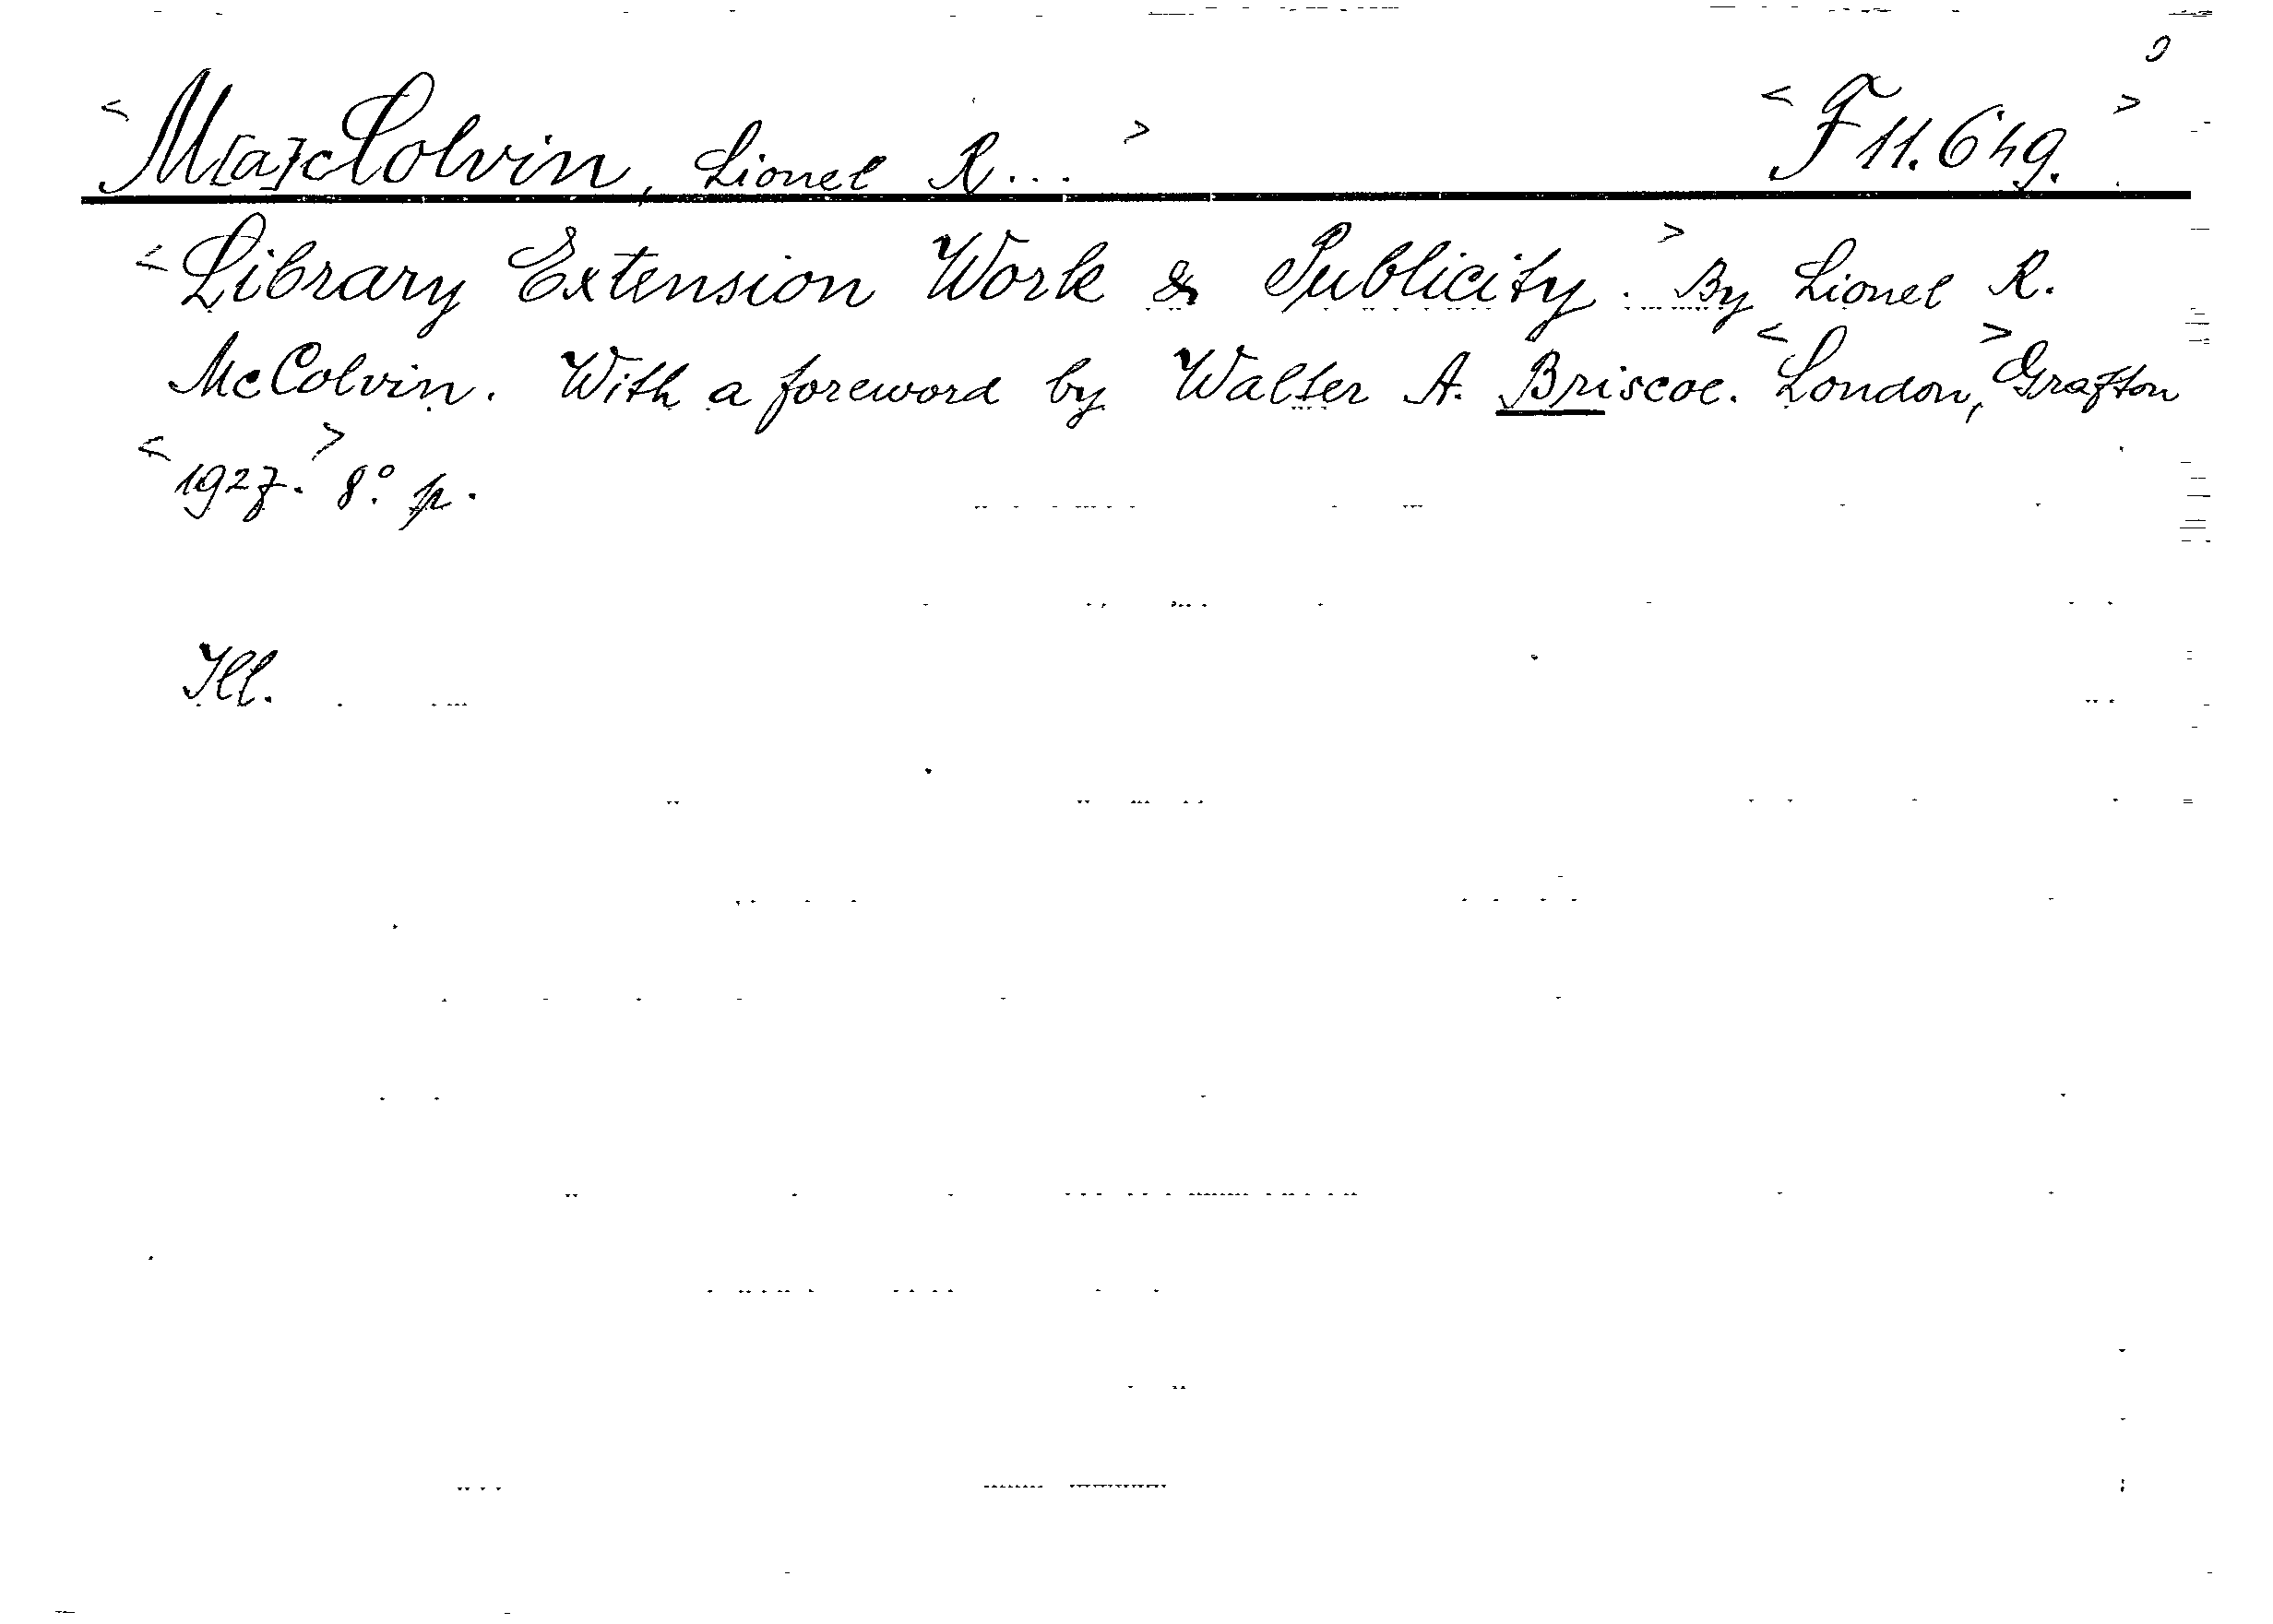 <M[a]cColvin, Lionel R...> <F 11.649.>
<Library Extension Work & Publicity.> By Lionel R.
McColvin. With a foreword by Walter A. Briscoe. <London,> Grafton
<1927.> 8°. p.
Ill.